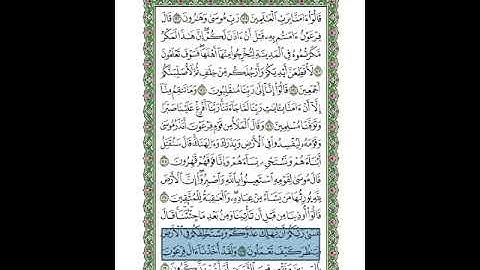 قَالُوٓا۟ ءَامَنَّا بِرَبِّ ٱلْعَٰلَمِينَ ۝١٢١ رَبِّ مُوسَىٰ وَهَٰرُونَ ۝١٢٢ قَالَ
فِرْعَوْنُ ءَامَنتُم بِهِۦ قَبْلَ أَنْ ءَاذَنَ لَكُمْ إِنَّ هَٰذَا لَمَكْرٌ
مَّكَرْتُمُوهُ فِى ٱلْمَدِينَةِ لِتُخْرِجُوا۟ مِنْهَآ أَهْلَهَا فَسَوْفَ تَعْلَمُونَ
۝١٢٣ لَأُقَطِّعَنَّ أَيْدِيَكُمْ وَأَرْجُلَكُم مِّنْ خِلَٰفٍ ثُمَّ لَأُصَلِّبَنَّكُمْ
أَجْمَعِينَ ۝١٢٤ قَالُوٓا۟ إِنَّآ إِلَىٰ رَبِّنَا مُنقَلِبُونَ ۝١٢٥ وَمَا تَنقِمُ مِنَّآ
إِلَّآ أَنْ ءَامَنَّا بِـَٔايَٰتِ رَبِّنَا لَمَّا جَآءَتْنَا رَبَّنَآ أَفْرِغْ عَلَيْنَا صَبْرًا
وَتَوَفَّنَا مُسْلِمِينَ ۝١٢٦ وَقَالَ ٱلْمَلَأُ مِن قَوْمِ فِرْعَوْنَ أَتَذَرُ مُوسَىٰ
وَقَوْمَهُۥ لِيُفْسِدُوا۟ فِى ٱلْأَرْضِ وَيَذَرَكَ وَءَالِهَتَكَ قَالَ سَنُقَتِّلُ
أَبْنَآءَهُمْ وَنَسْتَحْىِۦ نِسَآءَهُمْ وَإِنَّا فَوْقَهُمْ قَٰهِرُونَ ۝١٢٧
قَالَ مُوسَىٰ لِقَوْمِهِ ٱسْتَعِينُوا۟ بِٱللَّهِ وَٱصْبِرُوٓا۟ إِنَّ ٱلْأَرْضَ
لِلَّهِ يُورِثُهَا مَن يَشَآءُ مِنْ عِبَادِهِۦ وَٱلْعَٰقِبَةُ لِلْمُتَّقِينَ ۝١٢٨
قَالُوٓا۟ أُوذِينَا مِن قَبْلِ أَن تَأْتِيَنَا وَمِنۢ بَعْدِ مَا جِئْتَنَا قَالَ
عَسَىٰ رَبُّكُمْ أَن يُهْلِكَ عَدُوَّكُمْ وَيَسْتَخْلِفَكُمْ فِى ٱلْأَرْضِ
فَيَنظُرَ كَيْفَ تَعْمَلُونَ ۝١٢٩ وَلَقَدْ أَخَذْنَآ ءَالَ فِرْعَوْنَ